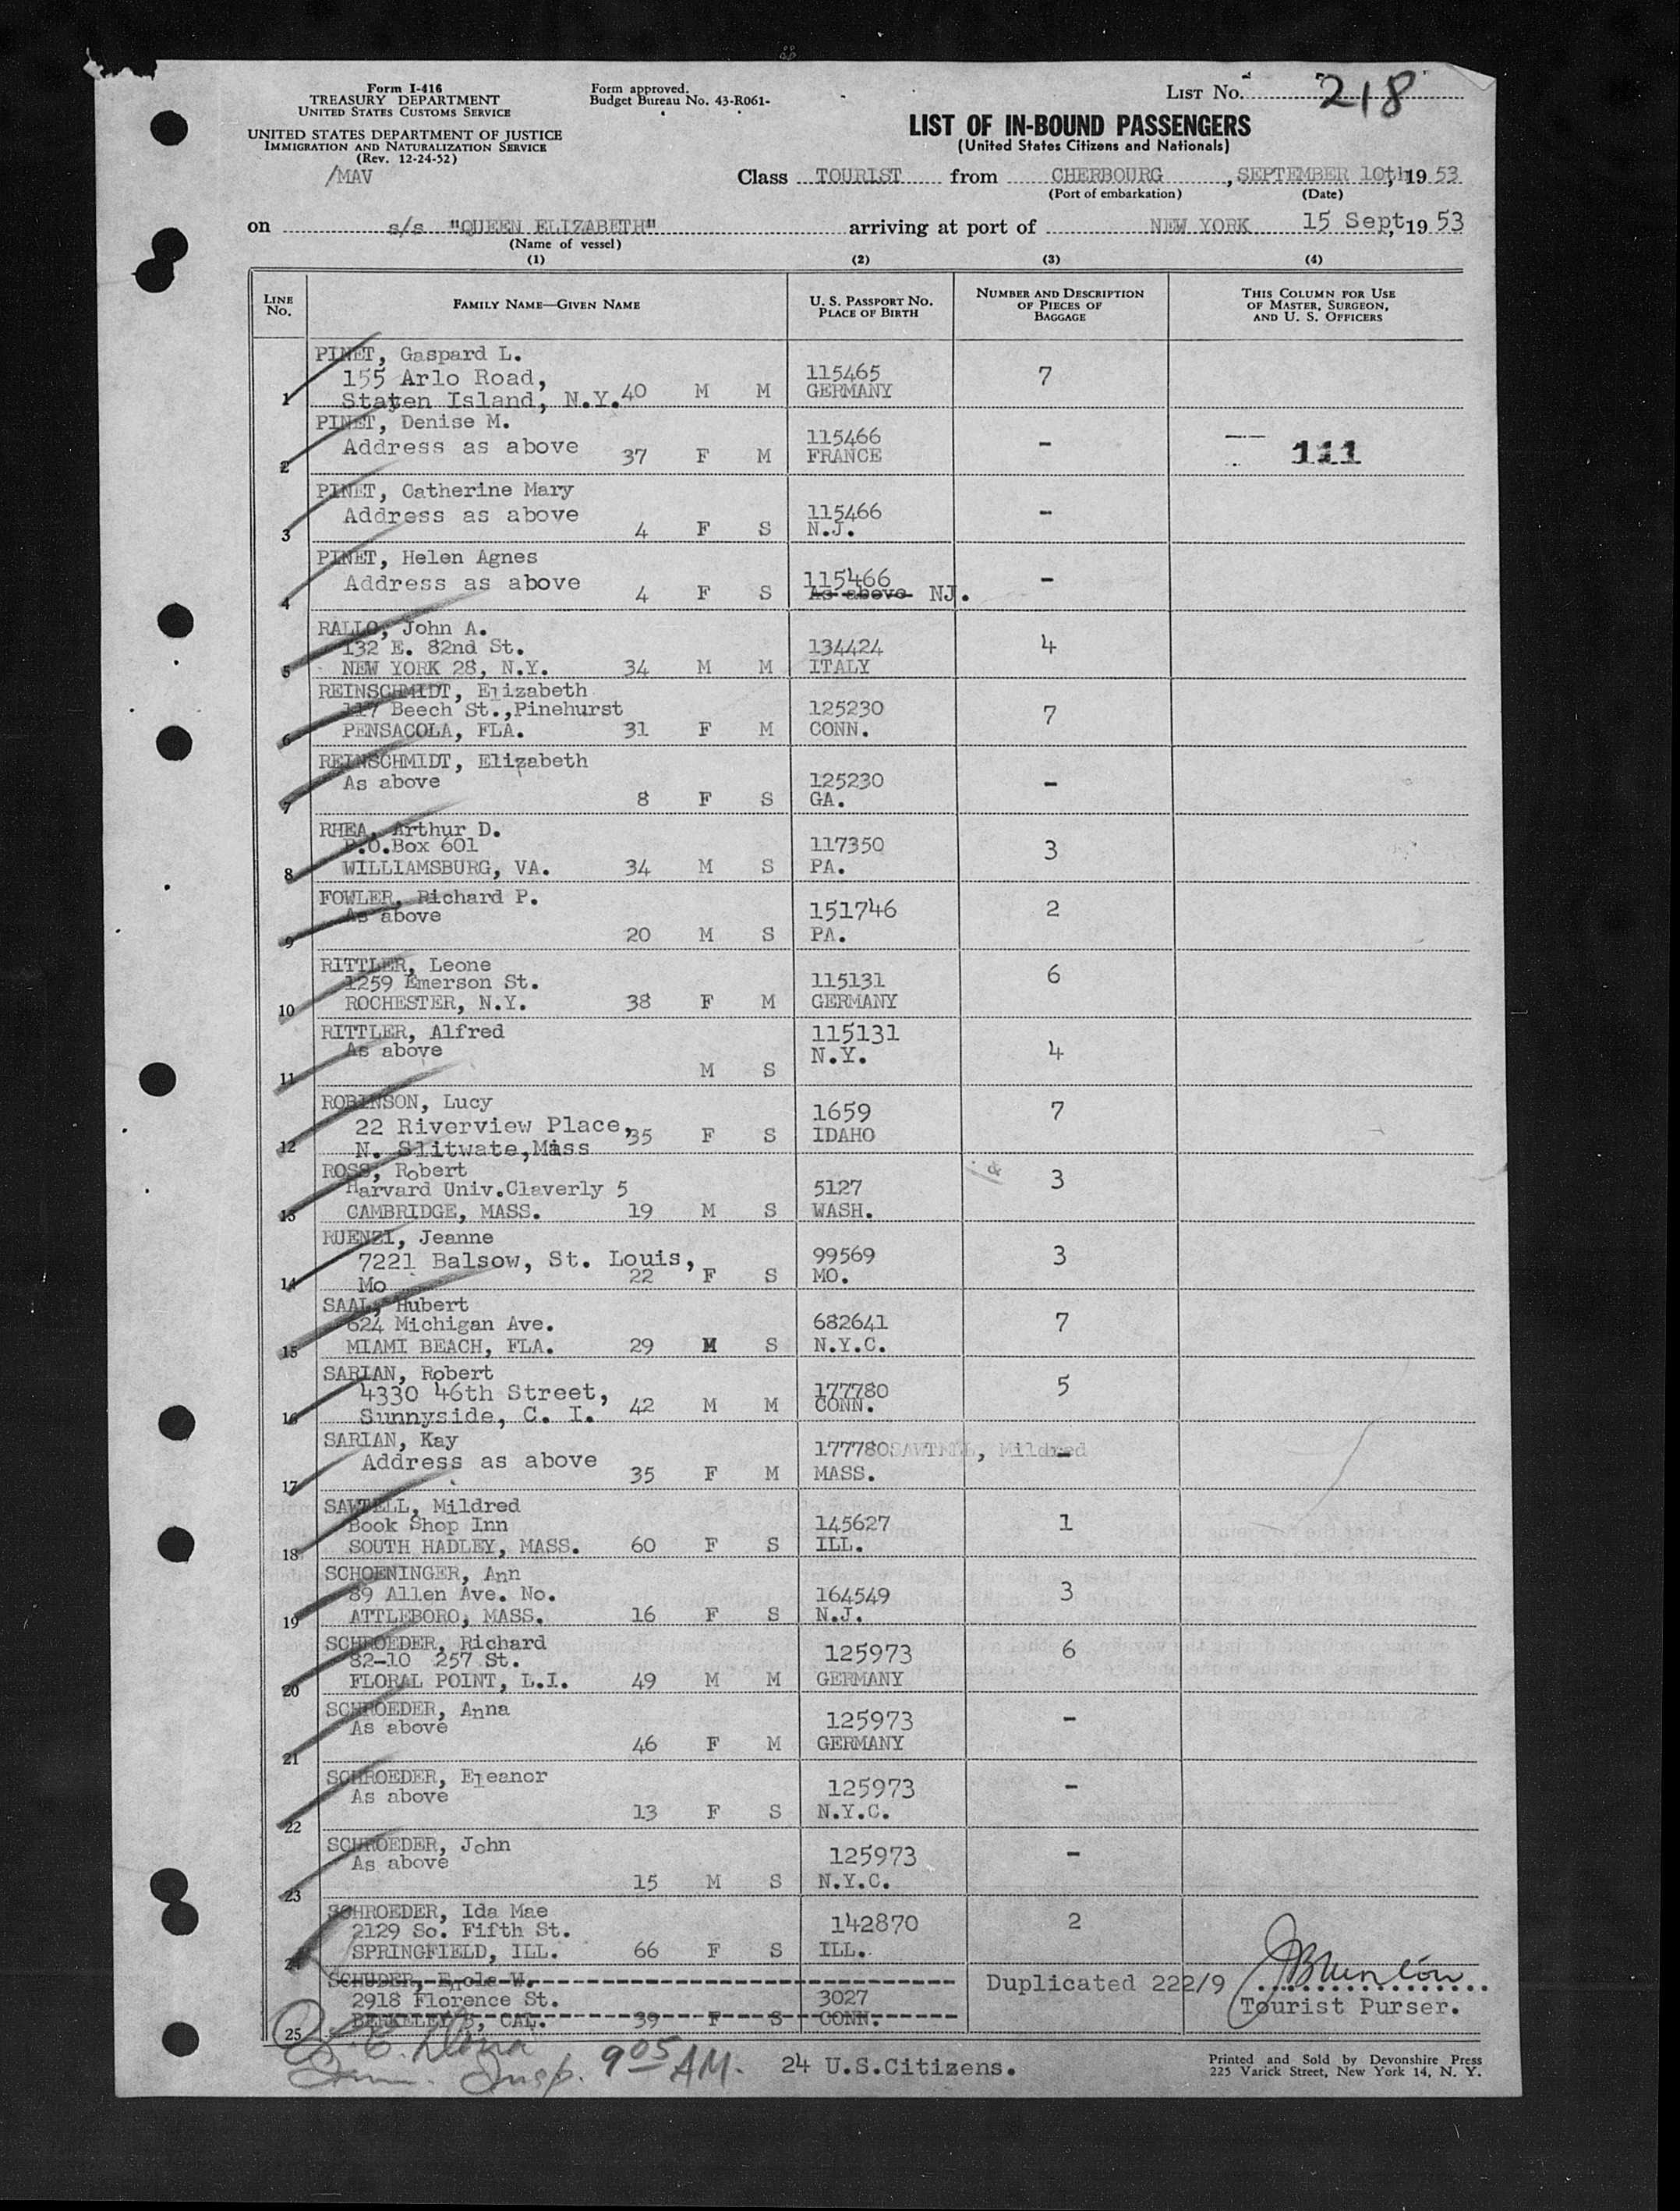 Form I-416
TREASURY DEPARTMENT
UNITED STATES CUSTOMS SERVICE
UNITED STATES DEPARTMENT OF JUSTICE
IMMIGRATION AND NATURALIZATION SERVICE
(Rev. 12-24-52)
/MAV
Form approved.
Budget Bureau No. 43-R061-
LIST No. 218
LIST OF IN-BOUND PASSENGERS
(United States Citizens and Nationals)
Class TOURIST from CHERBOURG, SEPTEMBER 10th, 1953
(Port of embarkation) (Date)
on s/s "QUEEN ELIZABETH" arriving at port of NEW YORK 15 Sept, 1953
(Name of vessel)
(1) (2) (3) (4)
LINE No. FAMILY NAME—GIVEN NAME U. S. PASSPORT NO. PLACE OF BIRTH NUMBER AND DESCRIPTION OF PIECES OF BAGGAGE THIS COLUMN FOR USE OF MASTER, SURGEON, AND U. S. OFFICERS
PINET, Gaspard L.
155 Arlo Road, 115465 7
1 Staten Island, N.Y. 40 M M GERMANY
PINET, Denise M.
Address as above 115466 - 111
2 37 F M FRANCE
PINET, Catherine Mary
Address as above 115466 -
3 4 F S N.J.
PINET, Helen Agnes
Address as above 115466 -
4 4 F S As above NJ.
RALLO, John A.
132 E. 82nd St. 134424 4
5 NEW YORK 28, N.Y. 34 M M ITALY
REINSCHMIDT, Elizabeth
117 Beech St.,Pinehurst 125230 7
6 PENSACOLA, FLA. 31 F M CONN.
REINSCHMIDT, Elizabeth
As above 125230 -
7 8 F S GA.
RHEA, Arthur D.
P.O.Box 601 117350 3
8 WILLIAMSBURG, VA. 34 M S PA.
FOWLER, Richard P.
As above 151746 2
9 20 M S PA.
RITTLER, Leone
1259 Emerson St. 115131 6
10 ROCHESTER, N.Y. 38 F M GERMANY
RITTLER, Alfred 115131
As above N.Y. 4
11 M S
ROBINSON, Lucy
22 Riverview Place, 1659 7
12 N. Slitwate,Mass 35 F S IDAHO
ROSS, Robert
Harvard Univ.Claverly 5 5127 3
13 CAMBRIDGE, MASS. 19 M S WASH.
RUENZI, Jeanne
7221 Balsow, St. Louis, 99569 3
14 Mo 22 F S MO.
SAAL, Hubert
624 Michigan Ave. 682641 7
15 MIAMI BEACH, FLA. 29 M S N.Y.C.
SARIAN, Robert
4330 46th Street, 177780 5
16 Sunnyside, C. I. 42 M M CONN.
SARIAN, Kay 177780 SAWTELL, Mildred
Address as above -
17 35 F M MASS.
SAWTELL, Mildred
Book Shop Inn 145627 1
18 SOUTH HADLEY, MASS. 60 F S ILL.
SCHOENINGER, Ann
89 Allen Ave. No. 164549 3
19 ATTLEBORO, MASS. 16 F S N.J.
SCHROEDER, Richard
82-10 257 St. 125973 6
20 FLORAL POINT, L.I. 49 M M GERMANY
SCHROEDER, Anna
As above 125973 -
21 46 F M GERMANY
SCHROEDER, Eleanor
As above 125973 -
22 13 F S N.Y.C.
SCHROEDER, John
As above 125973 -
23 15 M S N.Y.C.
SCHROEDER, Ida Mae
2129 So. Fifth St. 142870 2
24 SPRINGFIELD, ILL. 66 F S ILL.
SCHUDER, W. Duplicated 222/9
2918 Florence St. 3027 Tourist Purser.
25 BERKELEY 5, CAL. 39 F S CONN.
Imm. Insp. 9 05 AM. 24 U.S.Citizens.
Printed and Sold by Devonshire Press
225 Varick Street, New York 14, N. Y.